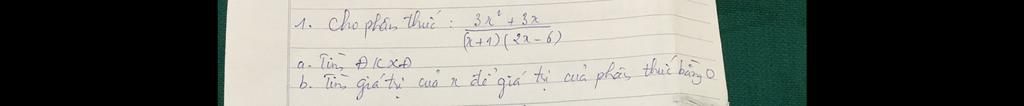 1. Cho phân thức : \frac{3x² + 3x}{(x+1)(2x-6)}
a. Tìm ĐKXĐ
b. Tìm giá trị của x để giá trị của phân thức bằng 0